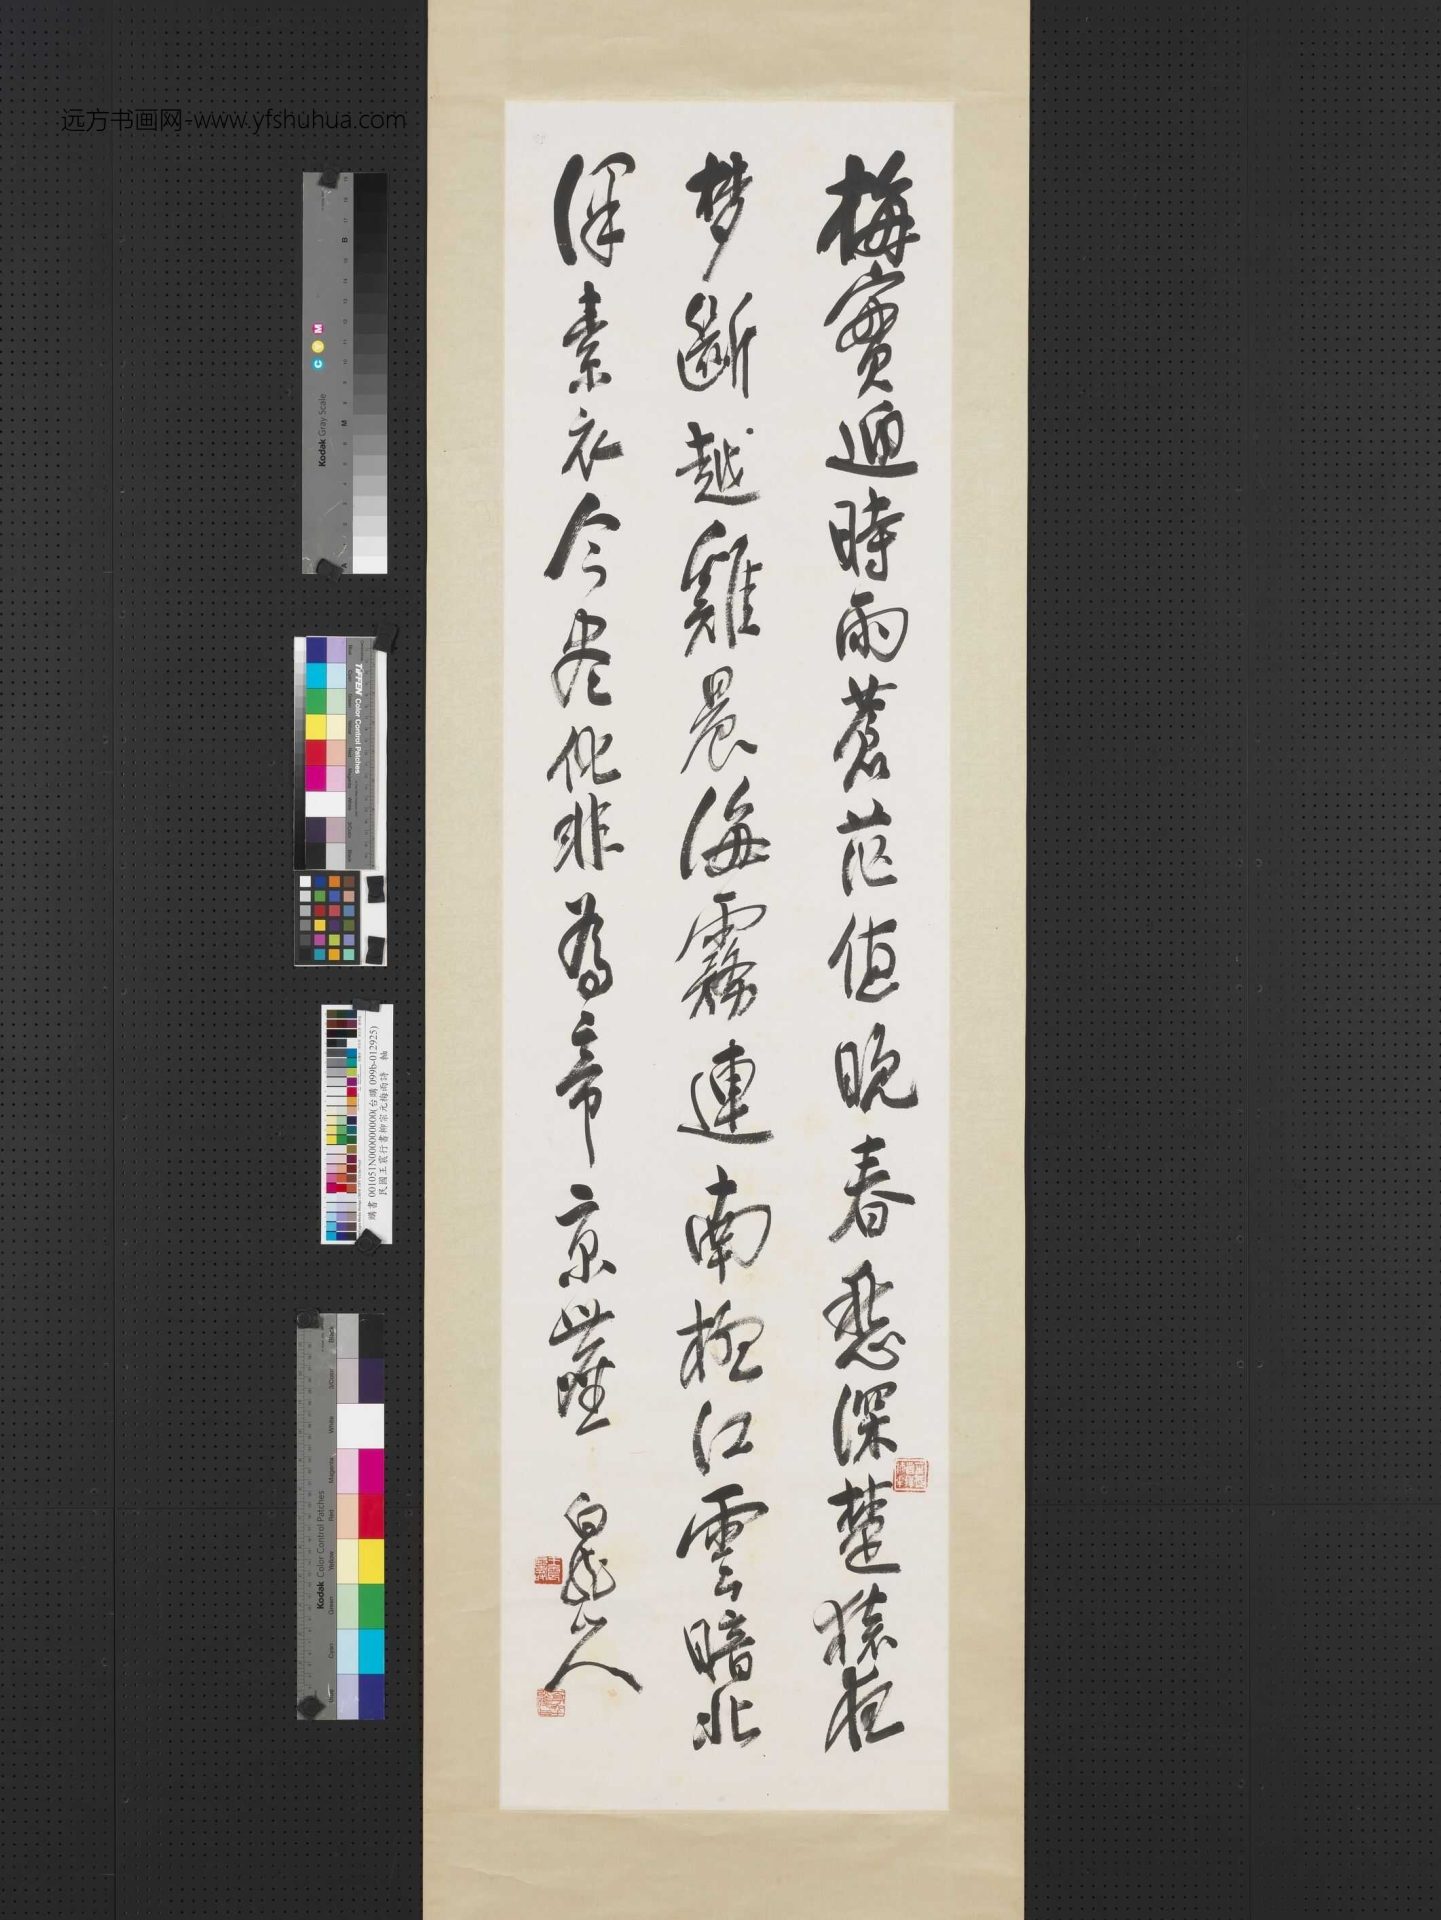 远方书画网-www.yfshuhua.com
梅實迎時雨蒼茫值晚春愁深楚猿夜
夢斷越雞晨海霧連南極江雲暗北
津素衣今盡化非為帝京塵
白龍山人
Kodak Gray Scale
C Y M
TIFFEN Color Control Patches
購書 001051N000000000(台購 099b-012925)
民國王震行書柳宗元梅雨詩 軸
Kodak Color Control Patches
Blue Cyan Green Yellow Red Magenta White 3/Color Black